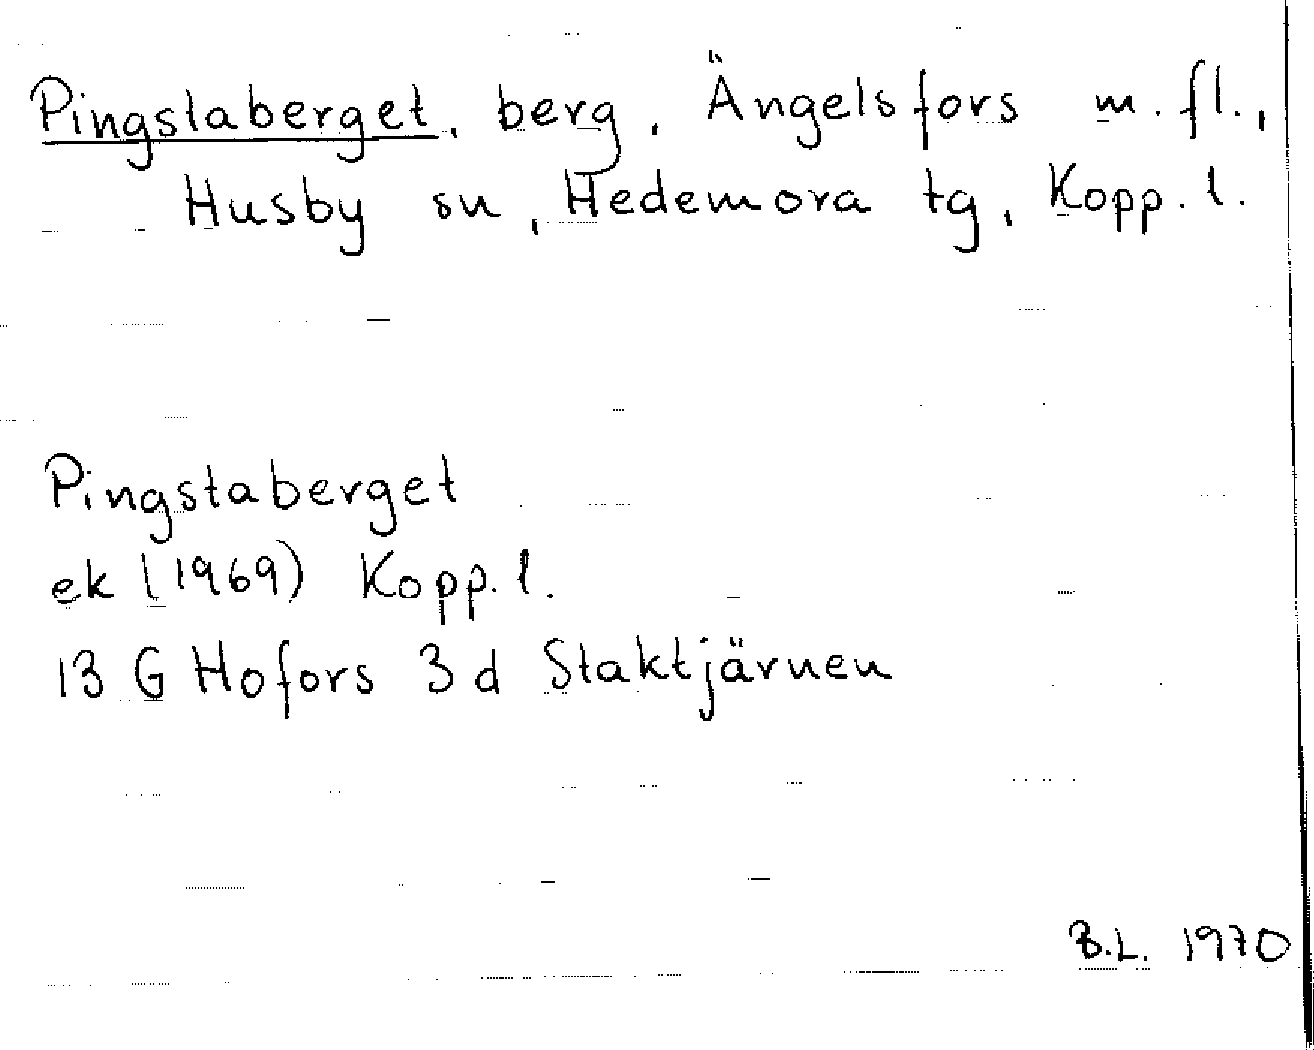 Pingstaberget, berg, Ängelsfors m.fl.,
Husby sn, Hedemora tg, Kopp. l.
Pingstaberget
ek (1969) Kopp. l.
13 G Hofors 3 d Staktjärnen
B.L. 1970